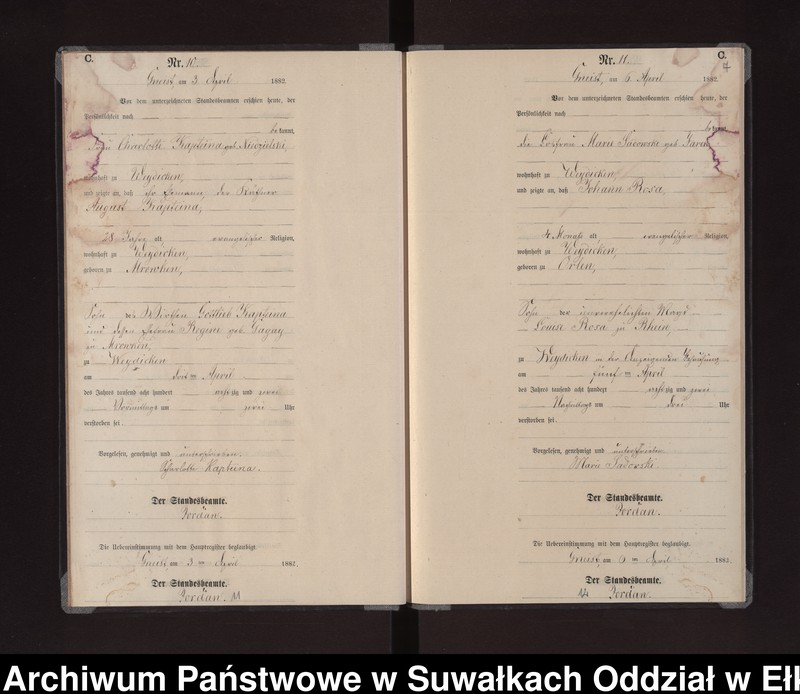 C.
Nr. 10.
Grieist, am 3 April 1882.
Vor dem unterzeichneten Standesbeamten erschien heute, der
Persönlichkeit nach
bekannt,
Charlotte Kapteina geb.
wohnhaft zu Weydicken,
und zeigte an, daß ihr Ehemann, der
August Kapteina,
28 Jahre alt evangelischer Religion,
wohnhaft zu Weydicken,
geboren zu Mrowken,
Sohn des Gottlieb Kapteina
und dessen Ehefrau Regine geb. Gagay
zu Mrowken,
zu Weydicken
am drei ten April
des Jahres tausend acht hundert achtzig und zwei
Vormittags um zwei Uhr
verstorben sei.
Vorgelesen, genehmigt und unterschrieben.
Charlotte Kapteina.
Der Standesbeamte.
Jordan.
Die Uebereinstimmung mit dem Hauptregister beglaubigt.
am 3 ten April 1882.
Der Standesbeamte.
Jordan. 11
C.
7
Nr. 11.
am 6 April 1882.
Vor dem unterzeichneten Standesbeamten erschien heute, der
Persönlichkeit nach
bekannt,
die Losfrau Marie Sadowski geb.
wohnhaft zu Weydicken,
und zeigte an, daß Johann Rosa,
4 Monate alt evangelischer Religion,
wohnhaft zu Weydicken,
geboren zu Orlen,
Sohn der unverehelichten Magd
Louise Rosa zu Rhein,
zu Weydicken in der Behausung
am fünf ten April
des Jahres tausend acht hundert achtzig und zwei
Nachmittags um drei Uhr
verstorben sei.
Vorgelesen, genehmigt und unterschrieben
Marie Sadowski.
Der Standesbeamte.
Jordan.
Die Uebereinstimmung mit dem Hauptregister beglaubigt.
am 6 ten April 1882.
Der Standesbeamte.
Jordan.
Archiwum Państwowe w Suwałkach Oddział w Eł